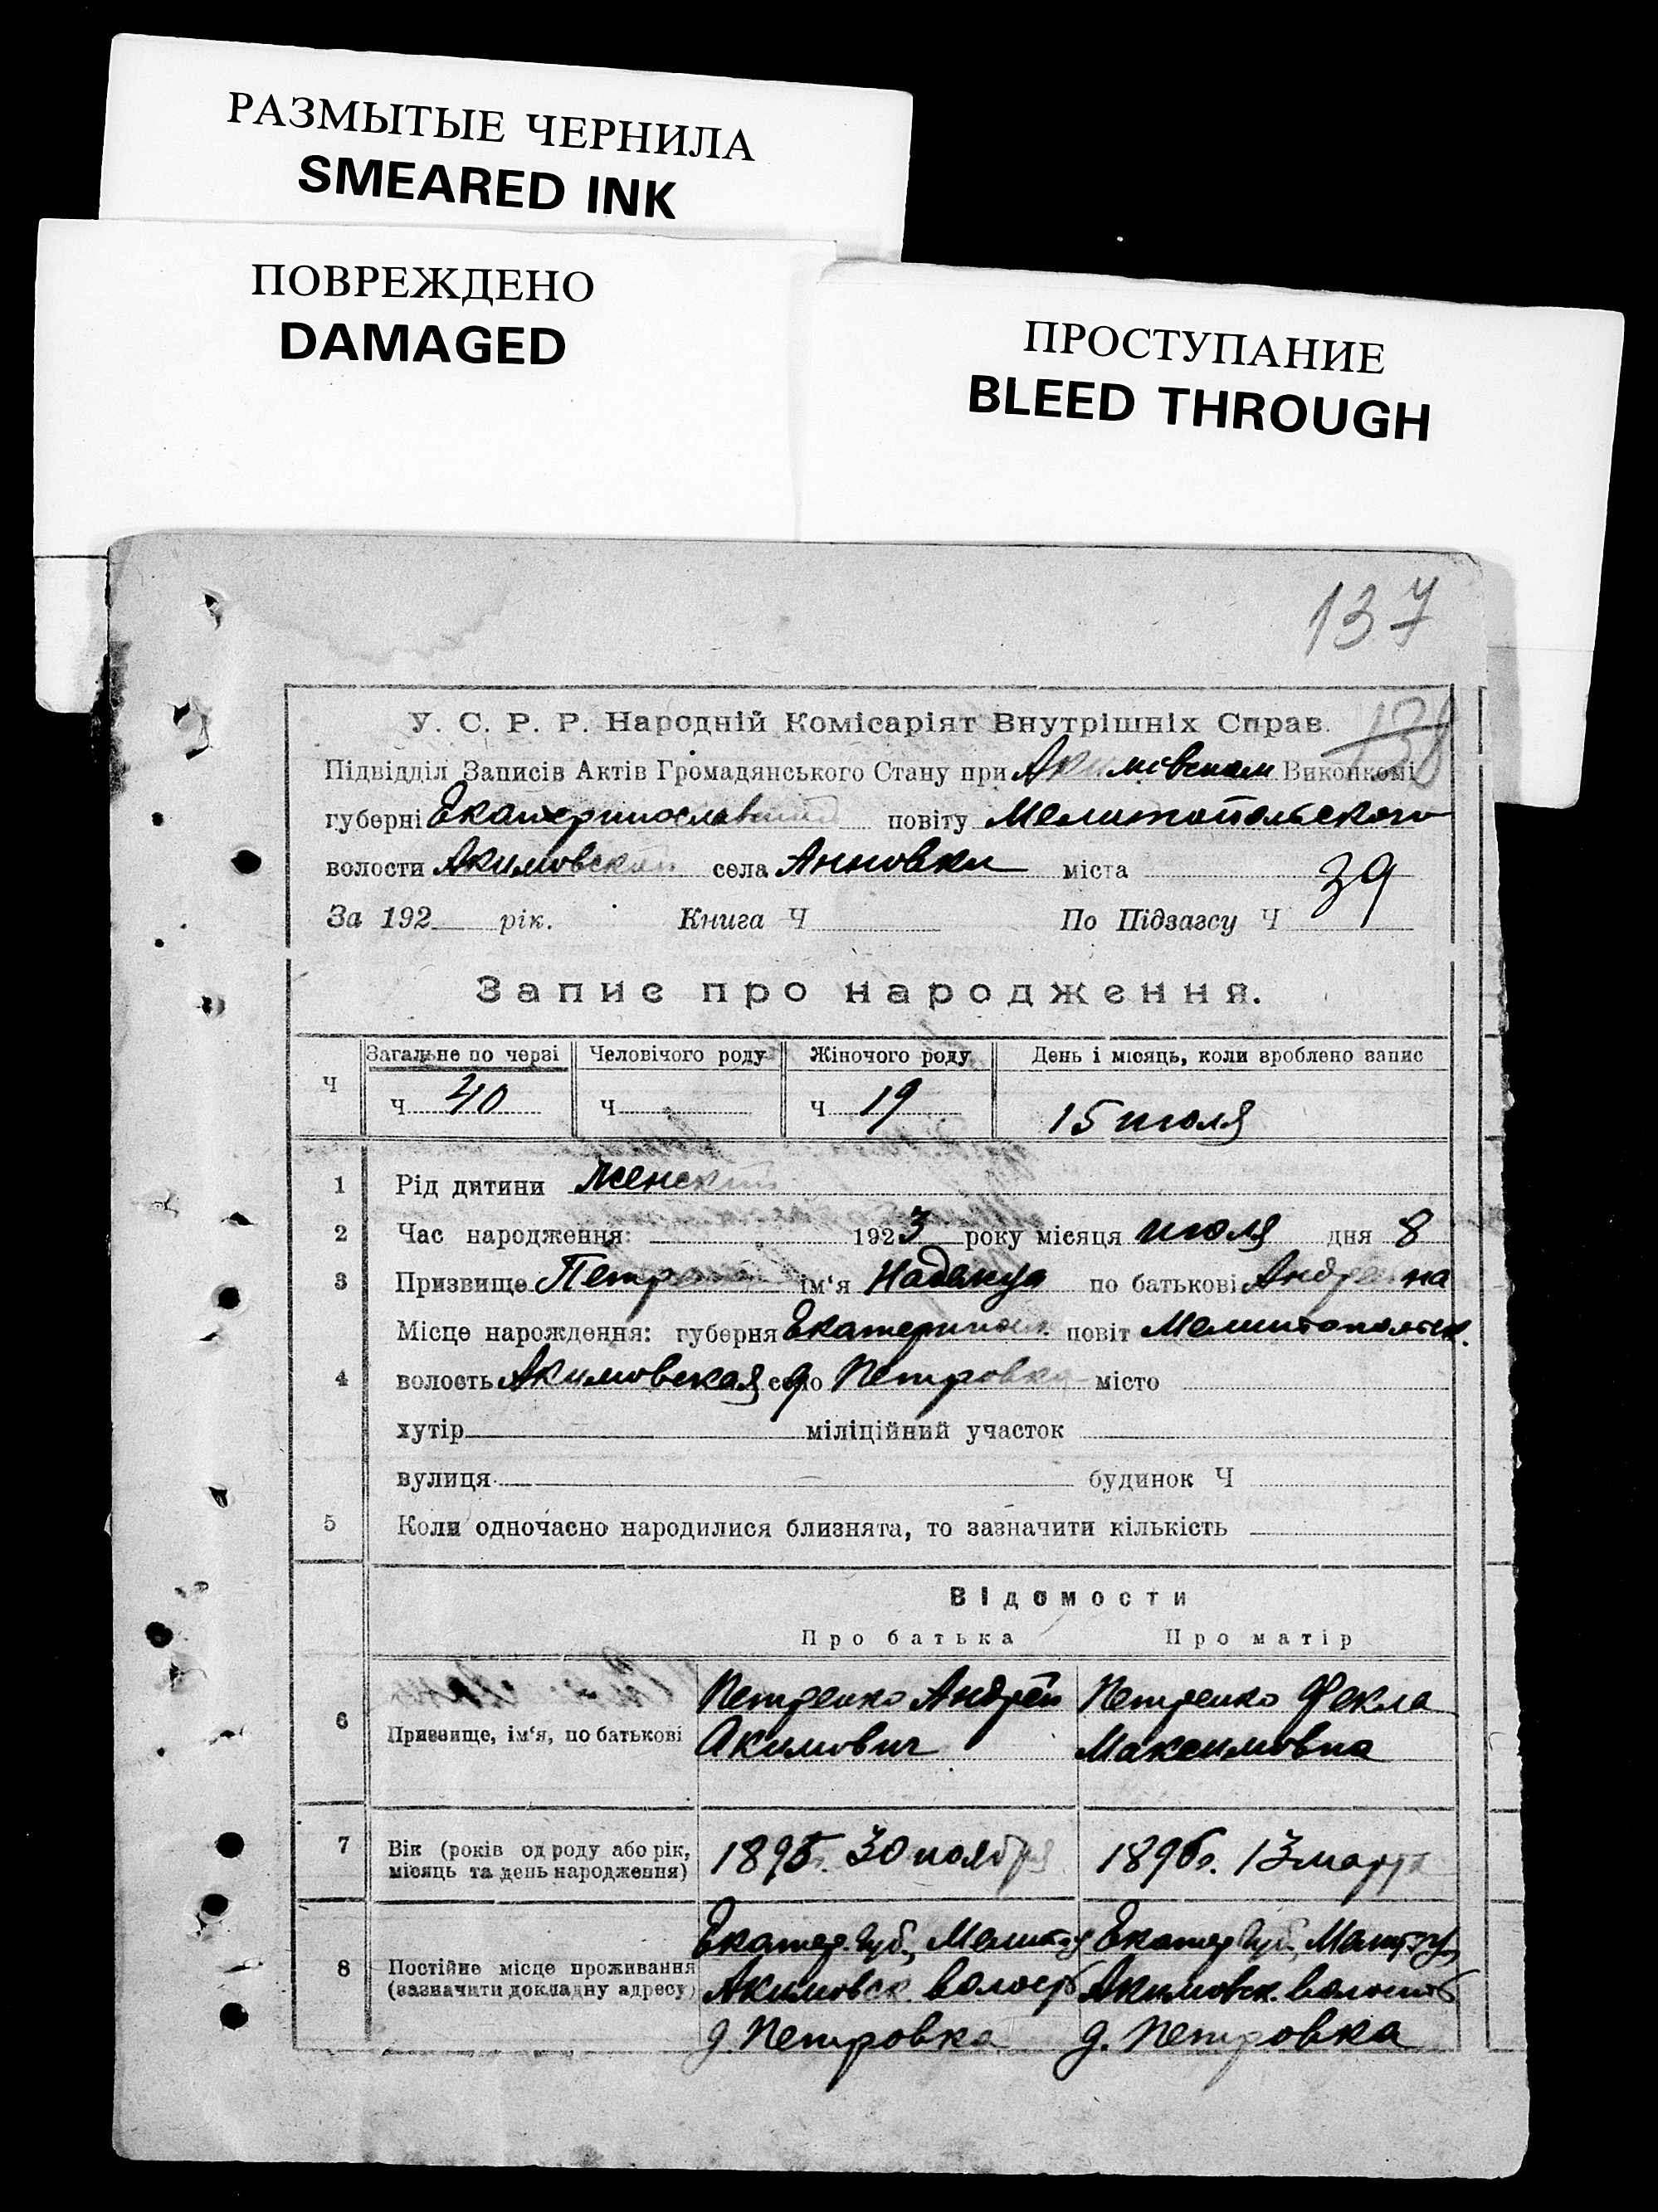 РАЗМЫТЫЕ ЧЕРНИЛА
SMEARED INK
ПОВРЕЖДЕНО
DAMAGED
ПРОСТУПАНИЕ
BLEED THROUGH
137
138
У. С. Р. Р. Народній Комісаріят Внутрішніх Справ.
Підвідділ Записів Актів Громадянського Стану при Акимовском Виконкомі
губерні Екатеринославской повіту Мелитопольского
волости Акимовской села Анновки міста
39
За 192 рік. Книга Ч По Підзагсу Ч
Запис про народження.
Ч Загальне по черзі Человічого роду Жіночого роду День і місяць, коли зроблено запис
Ч 40 Ч Ч 19 15 июля
1 Рід дитини Женский
2 Час народження: 1923 року місяця июля дня 8
3 Призвище Петренко ім'я Надежда по батькові Андреевна
Місце народження: губерня Екатеринос. повіт Мелитопольск.
4 волость Акимовская село д Петровка місто
хутір міліційний участок
вулиця будинок Ч
5 Коли одночасно народилися близнята, то зазначити кількість
Відомости
Про батька Про матір
6 Призвище, ім'я, по батькові
Петренко Андрей
Акимович
Петренко Фекла
Максимовна
7 Вік (років од роду або рік,
місяць та день народження)
1895г. 30 ноября
1896г. 13 марта
8 Постійне місце проживання
(зазначити докладну адресу)
Екатер. губ., Мелит. у
Акимовск. волость
д. Петровка
Екатер губ., Мелит. у,
Акимовск. волость
д. Петровка